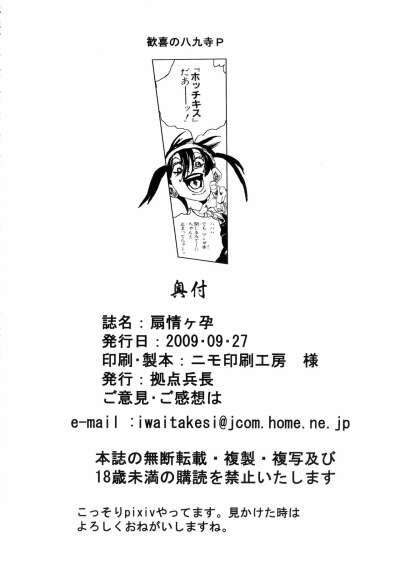 歓喜の八九寺P
『ホッチキス』
だあ――ッ!
奥付
誌名：扇情ヶ孕
発行日：2009・09・27
印刷・製本：ニモ印刷工房　様
発行：拠点兵長
ご意見・ご感想は
e-mail :iwaitakesi@jcom.home.ne.jp
本誌の無断転載・複製・複写及び
18歳未満の購読を禁止いたします
こっそりpixivやってます。見かけた時は
よろしくおねがいしますね。